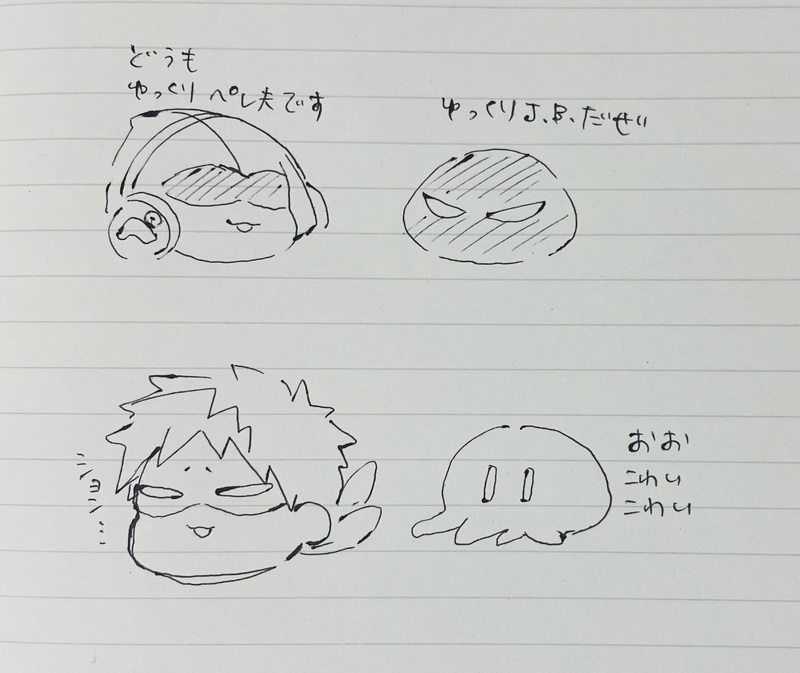 どうも
ゆっくりペレ夫です
ゆっくりJ.B.だぜ
ジョジ…
おお
こわい
こわい